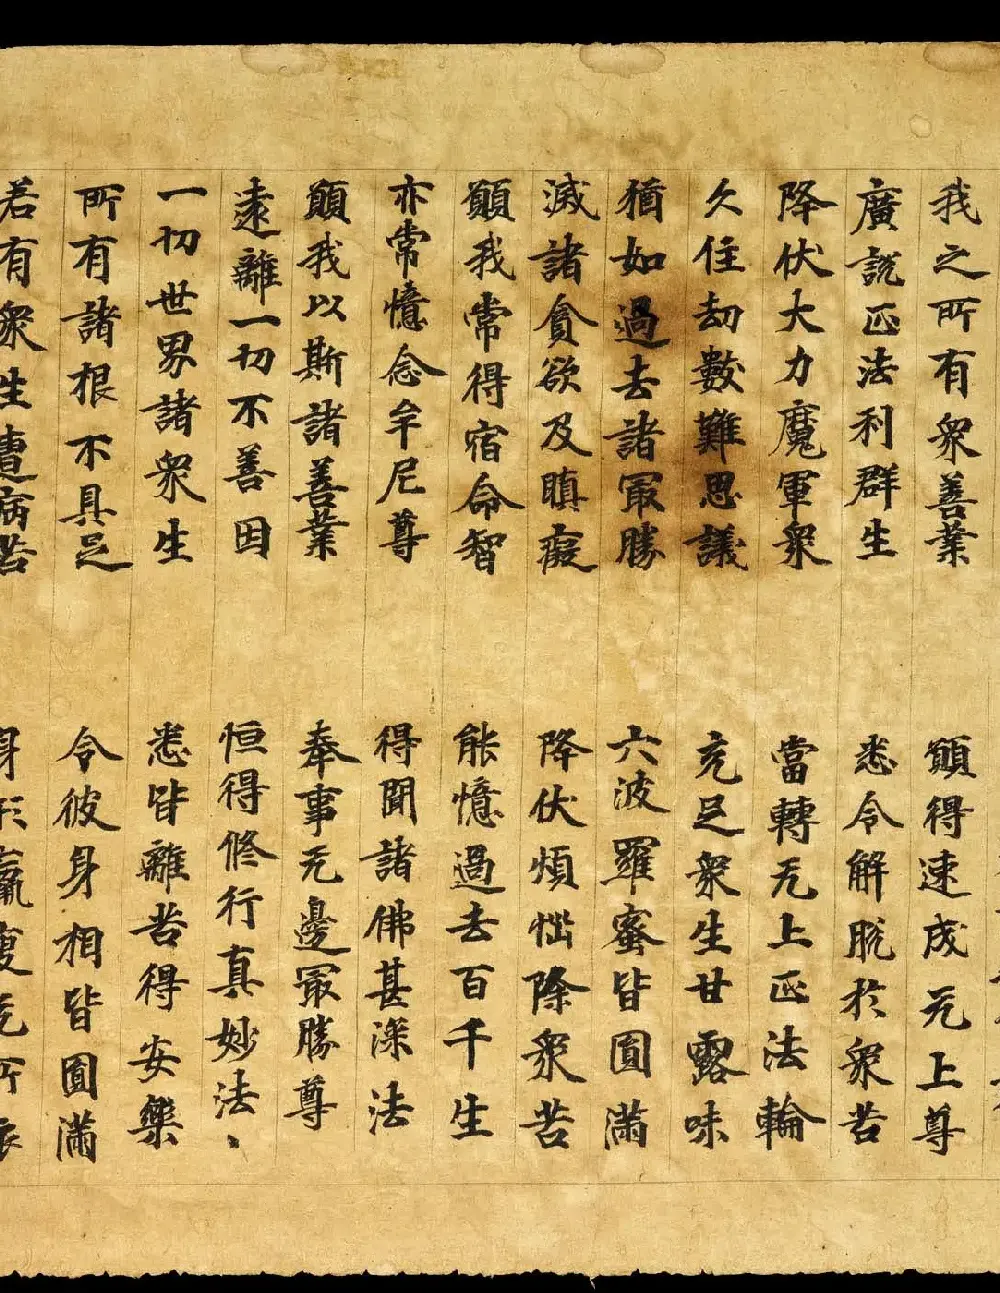 我之所有衆善業　願得速成无上尊
廣說正法利群生　悉令解脫於衆苦
降伏大力魔軍衆　當轉无上正法輪
久住劫數難思議　充足衆生甘露味
猶如過去諸冣勝　六波羅蜜皆圓滿
滅諸貪欲及瞋癡　降伏煩惱除衆苦
願我常得宿命智　能憶過去百千生
亦常憶念牟尼尊　得聞諸佛甚深法
願我以斯諸善業　奉事无邊冣勝尊
遠離一切不善因　恒得修行真妙法、
一切世界諸衆生　悉皆離苦得安樂
所有諸根不具足　令彼身相皆圓滿
若有衆生遭病苦　身形羸瘦无所依